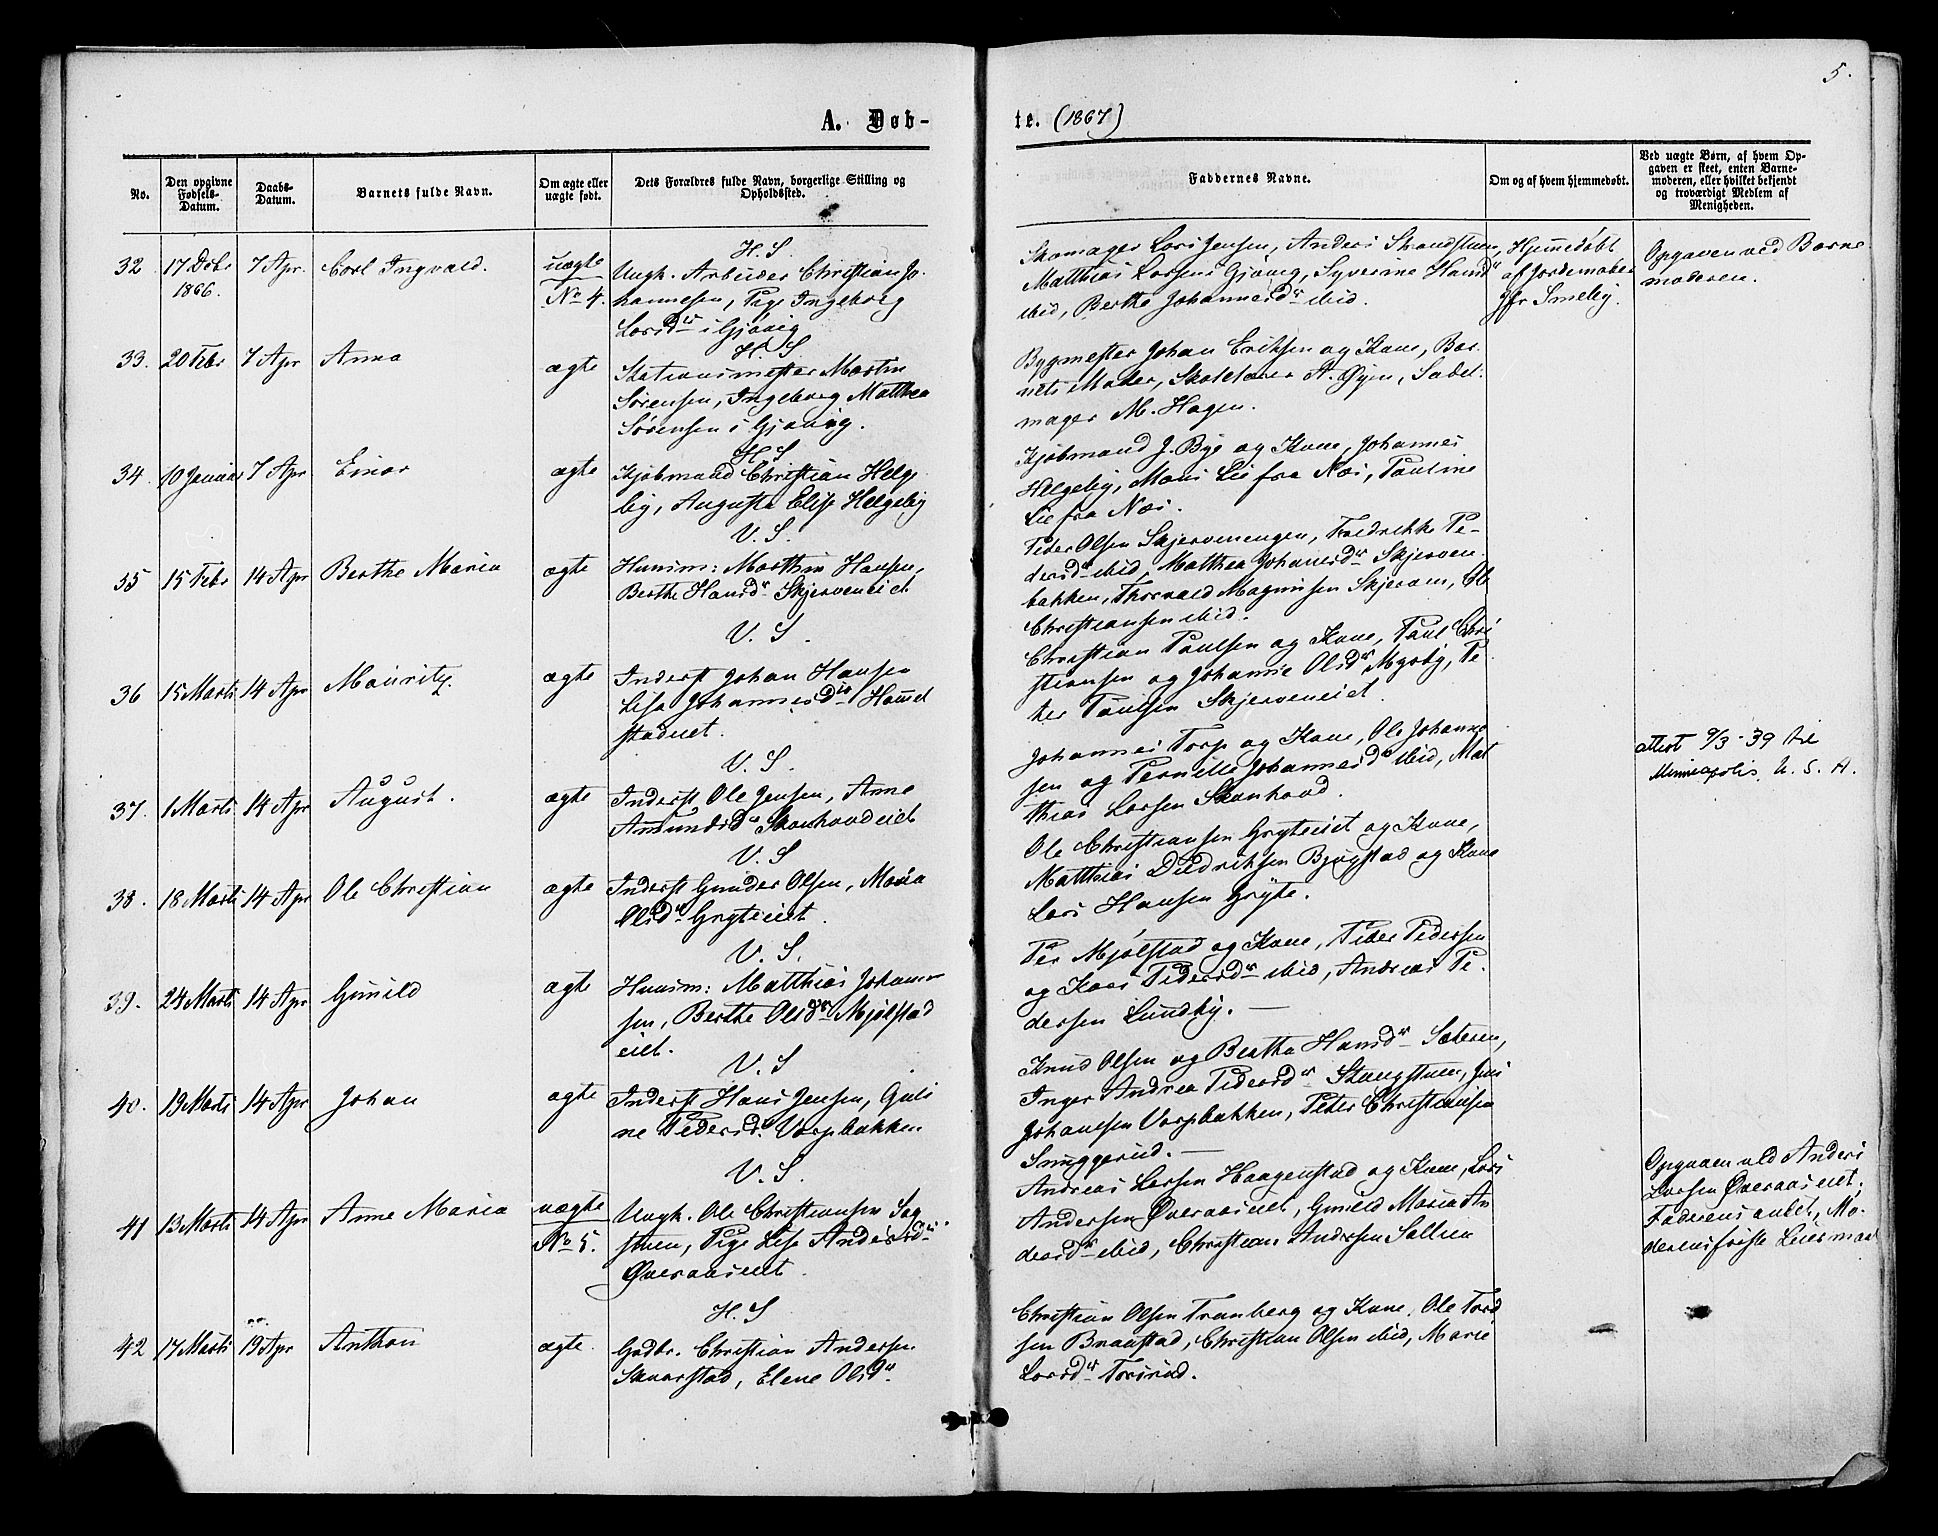 5.
A. Døb-
te. (1867)
No.
Den opgivne Fødsels-Datum.
Daabs-Datum.
Barnets fulde Navn.
Om ægte eller uægte født.
Dets Forældres fulde Navn, borgerlige Stilling og Opholdssted.
Faddernes Navne.
Om og af hvem hjemmedøbt.
Ved uægte Børn, af hvem Op-
gaven er skeet, enten Barne-
moderen, eller hvilket bekjendt
og troværdigt Medlem af
Menigheden.
32 17 Debr 1866. 7 Apr. Carl Ingvald. uægte No 4.
H. S.
Ungk. Arbeider Christian Jo-
hannesen, Pige Ingeborg
Larsdr i Gjøvig
Skomager Lars Jensen, Anders Strandstuen,
Matthias Larsens Gjøvig, Syverine Hansdr
ibid, Berthe Johannesdr ibid.
Hjemmedøbt
af Jordemoder
Jfr Smeby.
Opgaven ved Barne
moderen.
33. 20 Febr 7 Apr Anna ægte
H. S
Stationsmester Martin
Sørensen, Ingeborg Mathea
Sørensen i Gjøvig.
Bygmester Johan Eriksen og Kone, Bar-
nets Moder, Skolelærer A. Øyen, Sadel-
mager M. Hagen.
34. 10 Januar 7 Apr Einar ægte
H. S.
Kjøbmand Christian Helge
by, Augusta Elise Helgeby
Kjøbmand J. Bye og Kone, Johannes
Helgeby, Mons Lie fra Næs, Pauline
Lie fra Næs.
35 15 Febr 14 Apr Berthe Maria ægte
V. S.
Huusm: Marthin Hansen,
Berthe Hansdr Skjerveneiet
Peder Olsen Skjervenengen, Fredrikke Pe-
dersdr ibid, Matthea Johansdr Skjerven-
bakken, Thorvald Magnusen Skjerven, Ole
Christiansen ibid.
36 15 Marts 14 Apr Mauritz. ægte
V. S.
Inderst Johan Hansen
Lisa Johannesdr Hammer
stadeiet.
Christian Paulsen og Kone, Paul Chri
stiansen og Johanne Olsdr Mysby, Pe
ter Paulsen Skjerveneiet.
37. 1 Marts 14 Apr August. ægte
V. S.
Inderst Ole Jensen, Anne
Amundsdr Skonhovdeiet
Johannes Torp og Kone, Ole Johanne
sen og Pernille Johannesdr ibid, Mat
thias Larsen Skonhovd.
attest 9/3-39 til
Minneapolis, U. S. A.
38. 18 Marts 14 Apr Ole Christian ægte
V. S
Inderst Gunder Olsen, Maria
Olsdr Gryteeiet.
Ole Christiansen Gryteeiet og Kone,
Matthias Didriksen Bjøgstad og Kone
Lars Hansen Gryte.
39. 24 Marts 14 Apr Gunild ægte
V. S.
Huusm: Matthias Johanne
sen, Berthe Olsdr Mjølstad
eiet.
Per Mjølstad og Kone, Peder Pedersen
og Kari Pedersdr ibid, Andreas Pe-
dersen Lundby. —
40. 19 Marts 14 Apr Johan ægte
V. S
Inderst Hans Jensen, Guli
ne Pedersdr Vorpbakken
Knud Olsen og Bertha Hansdr Sæteren,
Inger Andrea Pedersdr Stangstuen, Jens
Johansen Vorpbakken, Peter Christiansen
Snuggerud. —
41 13 Marts 14 Apr Anne Maria uægte No 5.
V. S.
Ungk. Ole Christiansen Sag
stuen, Pige Lisa Andersdr
Øveraaseiet.
Andreas Larsen Haagenstad og Kone, Lars
Andersen Øveraaseiet, Gunild Maria An
dersdr ibid, Christian Andersen Sollien
Opgaven ved Anders
Larsen Øveraaseiet.
Faderens andet, Mo-
derens første Leiermaal
42 17 Marts 19 Apr Anthon ægte.
H. S
Gdbr. Christian Andersen
Skuarstad, Elene Olsdr
Christian Olsen Tranberg og Kone, Ole Tord
sen Braastad, Christian Olsen ibid, Marie
Larsdr Torsrud.